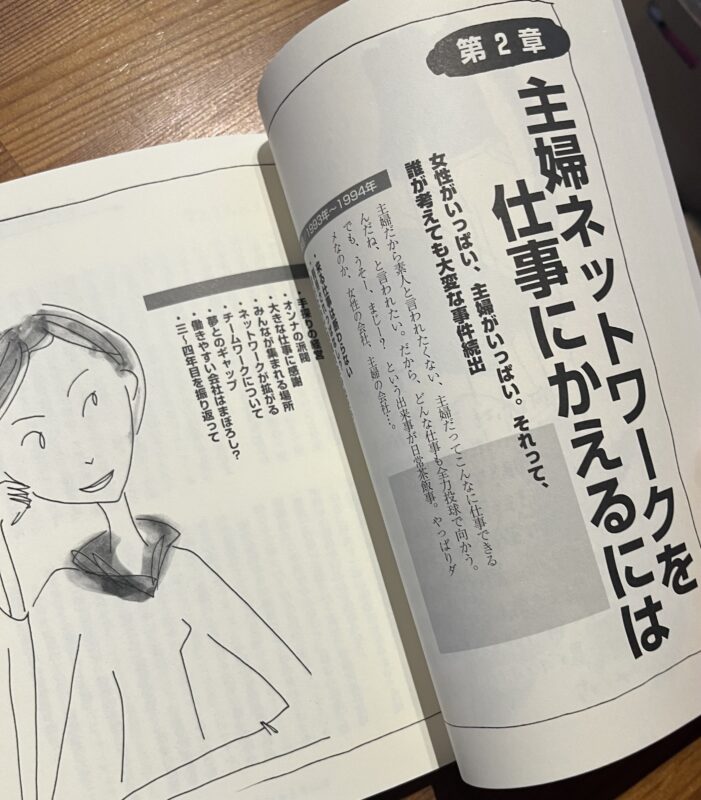 第2章
主婦ネットワークを
仕事にかえるには
女性がいっぱい、主婦がいっぱい。それって、
誰が考えても大変な事件続出
主婦だから素人と言われたくない、主婦だってこんなに仕事できる
んだね、と言われたい。だから、どんな仕事も全力投球で向かう。
でも、うそー、まじー?、という出来事が日常茶飯事。やっぱりダ
メなのか、女性の会社、主婦の会社…。
1993年〜1994年
・来る仕事は断わらない
・手探りの経営
・オンナの派閥
・大きな仕事に感謝
・みんなが集まれる場所
・ネットワークが拡がる
・チームワークについて
・夢とのギャップ
・働きやすい会社はまぼろし?
・三〜四年目を振り返って